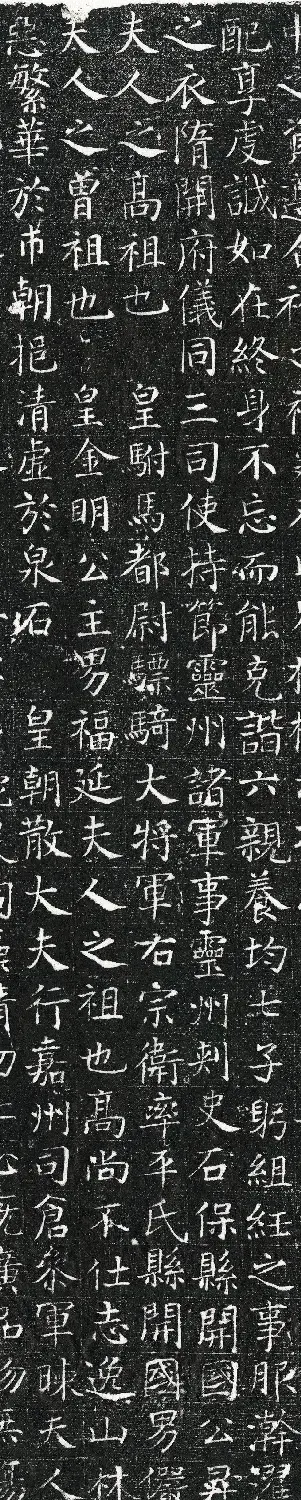 配享虔誠如在終身不忘而能克諧六親養均七子躬組紝之事服澣濯
之衣隋開府儀同三司使持節靈州諸軍事靈州刺史石保縣開國公昇
夫人之髙祖也 皇駙馬都尉驃騎大將軍右宗衛率平氏縣開國男儼
夫人之曾祖也 皇金明公主男福延夫人之祖也髙尚不仕志逸山林
惡繁華於市朝挹清虛於泉石 皇朝散大夫行嘉州司倉參軍昧夫人